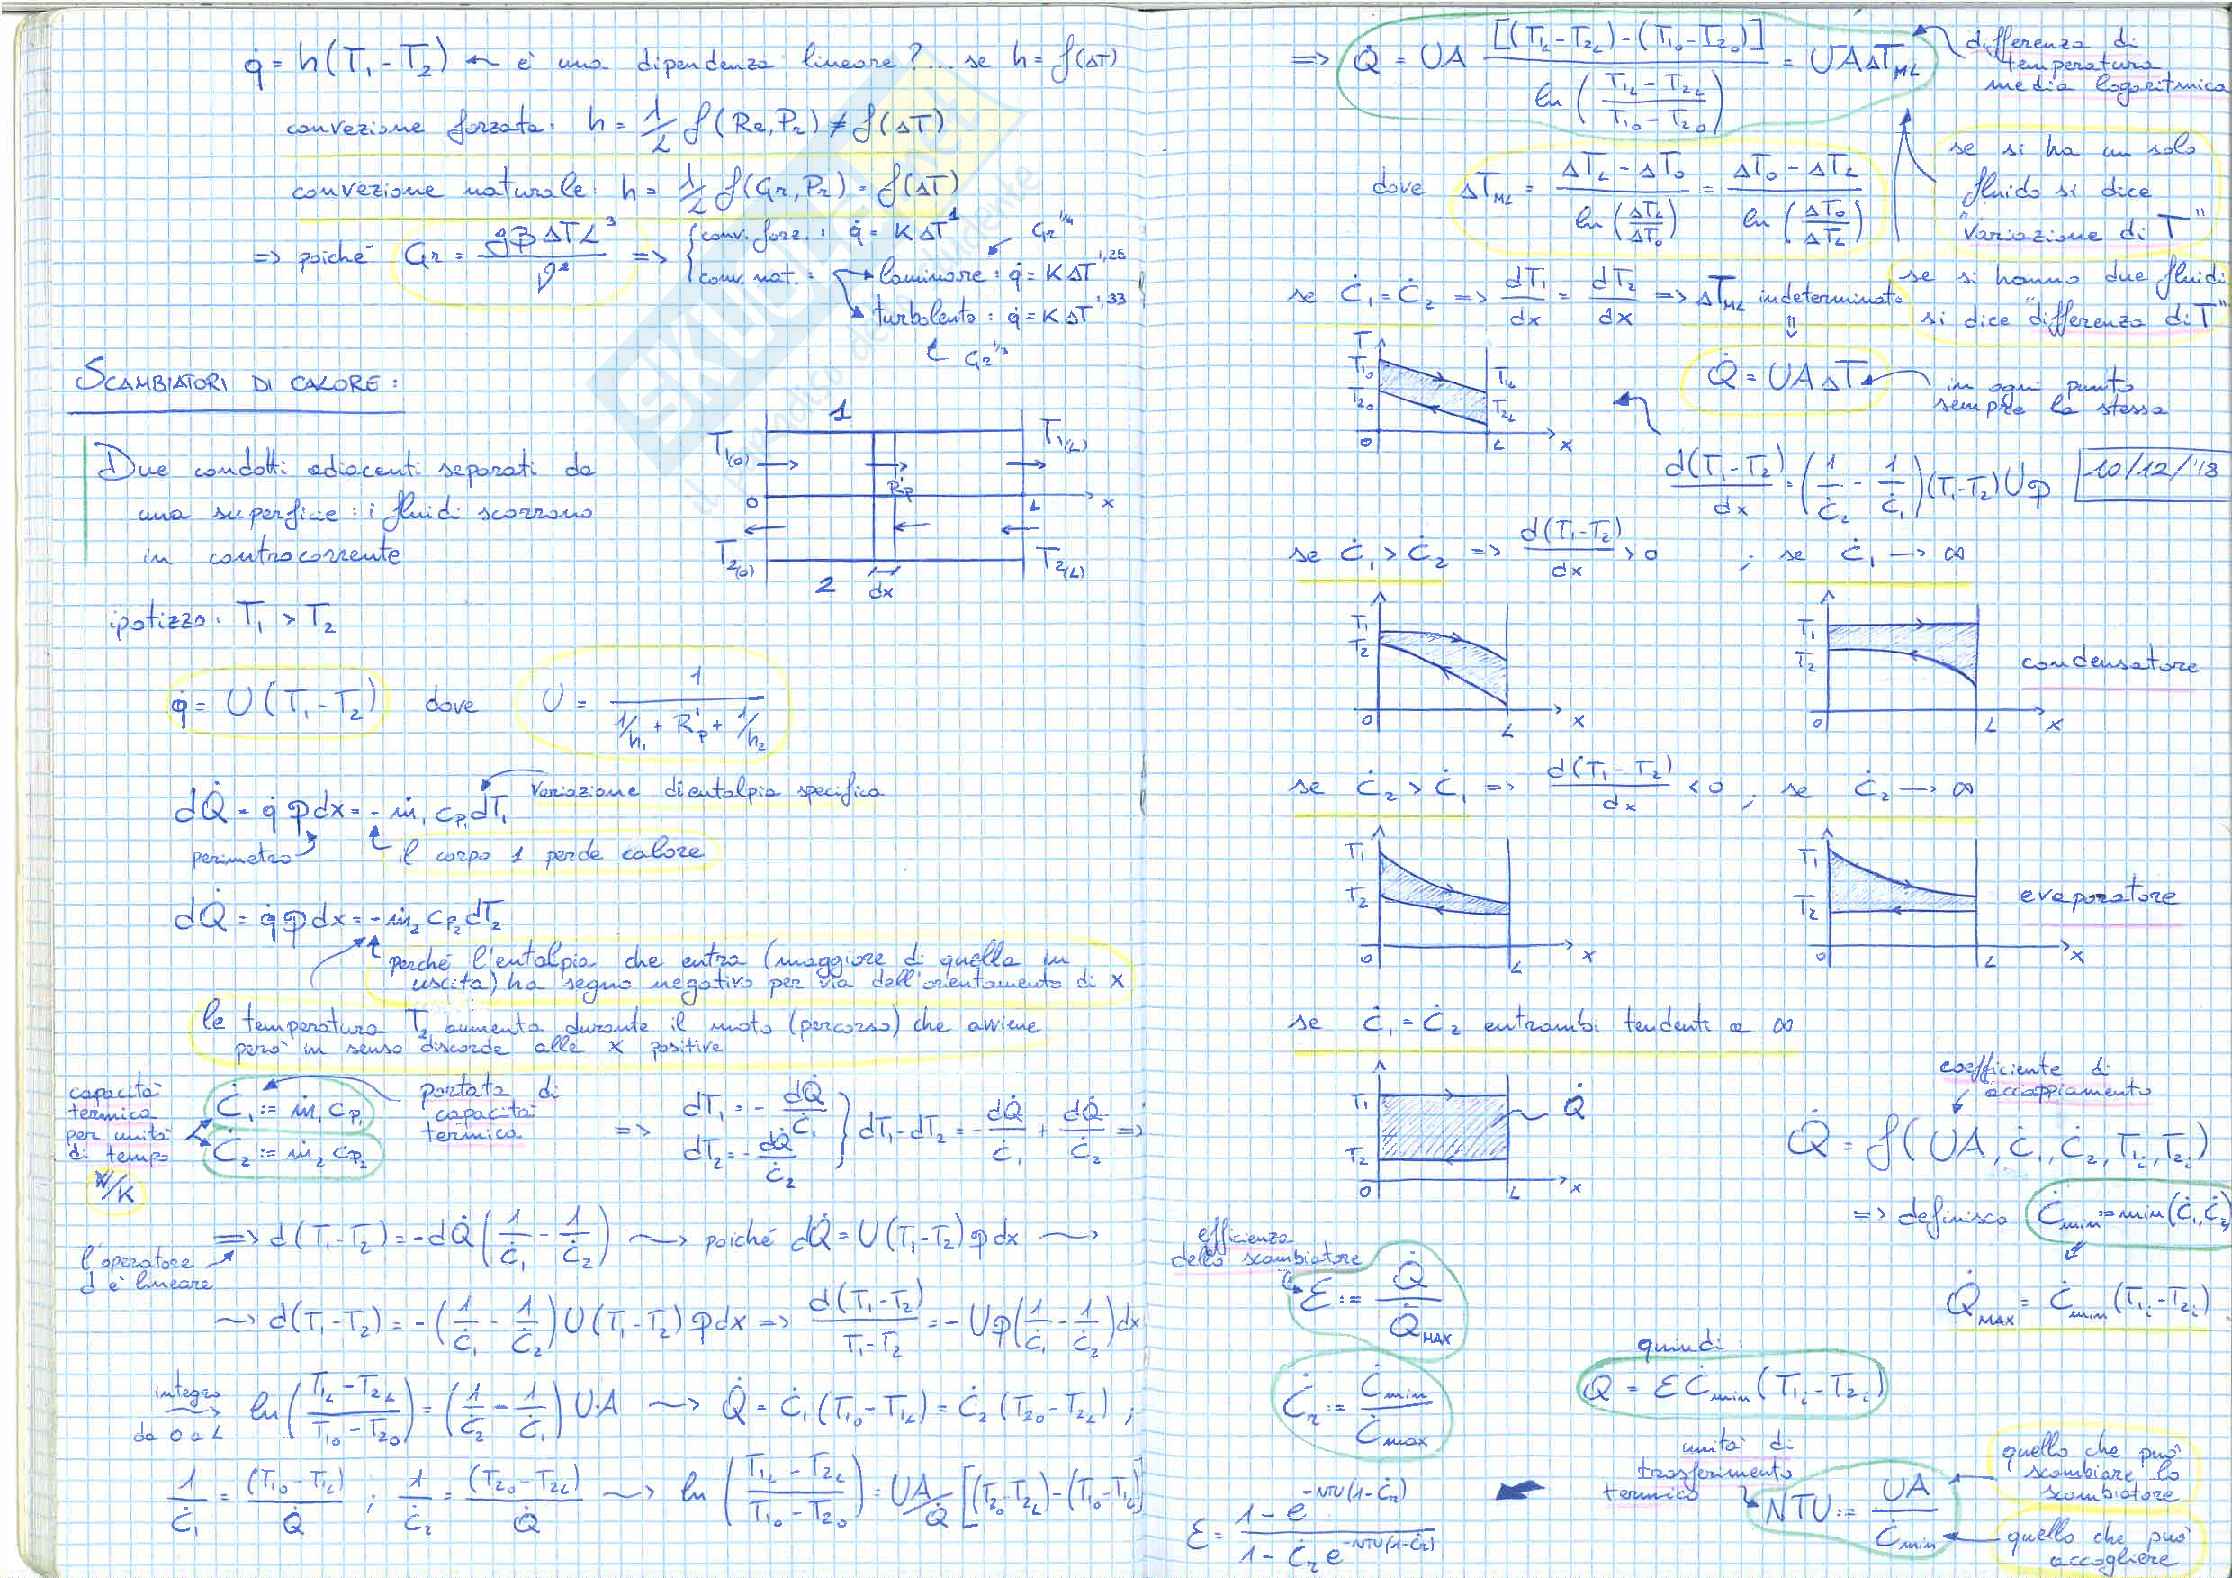 q̇ = h(T₁-T₂) ← è una dipendenza lineare?... se h = f(ΔT)
convezione forzata: h = 1/L f(Re, Pr) ≠ f(ΔT)
convezione naturale: h = 1/L f(Gr, Pr) = f(ΔT)
=> poiché Gr = gβΔTL³/ν² => { conv. forz.: q̇ = KΔT¹ Gr^1/4
conv. nat.: → laminare: q̇ = KΔT^1,25
turbolento: q̇ = KΔT^1,33
Gr^1/3
SCAMBIATORI DI CALORE:
Due condotti adiacenti separati da
una superficie: i fluidi scorrono
in controcorrente
1
T₁(0) T₁(L)
R'p
0 L x
T₂(0) T₂(L)
2 dx
ipotizzo: T₁ > T₂
q̇ = U(T₁-T₂) dove U = 1/(1/h₁ + R'p + 1/h₂)
variazione di entalpia specifica
dQ̇ = q̇ p dx = - ṁ₁ cp₁ dT₁
perimetro il corpo 1 perde calore
dQ̇ = q̇ p dx = - ṁ₂ cp₂ dT₂
perché l'entalpia che entra (maggiore di quella in
uscita) ha segno negativo per via dell'orientamento di x
la temperatura T₂ aumenta durante il moto (percorso) che avviene
però in senso discorde alle x positive
capacità termica per unità di tempo
W/K
Ċ₁ := ṁ₁ cp₁
Ċ₂ := ṁ₂ cp₂
portata di capacità termica
=> dT₁ = - dQ̇/Ċ₁
dT₂ = - dQ̇/Ċ₂ } dT₁-dT₂ = - dQ̇/Ċ₁ + dQ̇/Ċ₂ =>
=> d(T₁-T₂) = -dQ̇(1/Ċ₁ - 1/Ċ₂) ~> poiché dQ̇ = U(T₁-T₂) p dx ~>
l'operatore d è lineare
~> d(T₁-T₂) = -(1/Ċ₁ - 1/Ċ₂) U(T₁-T₂) p dx => d(T₁-T₂)/(T₁-T₂) = -Up(1/Ċ₁ - 1/Ċ₂)dx
integro da 0 a L → ln((T₁L-T₂L)/(T₁₀-T₂₀)) = (1/Ċ₂ - 1/Ċ₁) U·A ~> Q̇ = Ċ₁(T₁₀-T₁L) = Ċ₂(T₂₀-T₂L);
1/Ċ₁ = (T₁₀-T₁L)/Q̇ ; 1/Ċ₂ = (T₂₀-T₂L)/Q̇ ~> ln((T₁L-T₂L)/(T₁₀-T₂₀)) = UA/Q̇ [(T₂₀-T₂L)-(T₁₀-T₁L)]
=> Q̇ = UA [(T₁L-T₂L)-(T₁₀-T₂₀)]/ln((T₁L-T₂L)/(T₁₀-T₂₀)) = UAΔT_ML
differenza di
temperatura
media logaritmica
dove ΔT_ML = (ΔT_L-ΔT₀)/ln(ΔT_L/ΔT₀) = (ΔT₀-ΔT_L)/ln(ΔT₀/ΔT_L)
se si ha un solo
fluido si dice
"variazione di T"
se si hanno due fluidi
si dice "differenza di T"
se Ċ₁ = Ċ₂ => dT₁/dx = dT₂/dx => ΔT_ML indeterminato
T
T₁₀ T₁L
T₂₀ T₂L
0 L x
Q̇ = UAΔT ← in ogni punto
sempre la stessa
d(T₁-T₂)/dx = (1/Ċ₂ - 1/Ċ₁)(T₁-T₂)Up
10/12/'13
se Ċ₁ > Ċ₂ => d(T₁-T₂)/dx > 0 ; se Ċ₁ → ∞
T₁ T₂ 0 L x
T₁ T₂ 0 L x condensatore
se Ċ₂ > Ċ₁ => d(T₁-T₂)/dx < 0 ; se Ċ₂ → ∞
T₁ T₂ 0 L x
T₁ T₂ 0 L x evaporatore
se Ċ₁ = Ċ₂ entrambi tendenti a ∞
T₁ T₂ 0 L x Q̇
coefficiente di
accoppiamento
Q̇ = f(UA, Ċ₁, Ċ₂, T₁ᵢ, T₂ᵢ)
=> definisco Ċmin := min(Ċ₁, Ċ₂)
efficienza
dello scambiatore
ε := Q̇/Q̇MAX
Q̇MAX = Ċmin(T₁ᵢ-T₂ᵢ)
quindi:
Q̇ = εĊmin(T₁ᵢ-T₂ᵢ)
Ċr := Ċmin/Ċmax
unità di
trasferimento
termico
NTU := UA/Ċmin
quello che può
scambiare lo
scambiatore
quello che può
accogliere
ε = (1-e^(-NTU(1-Ċr)))/(1-Ċr e^(-NTU(1-Ċr)))